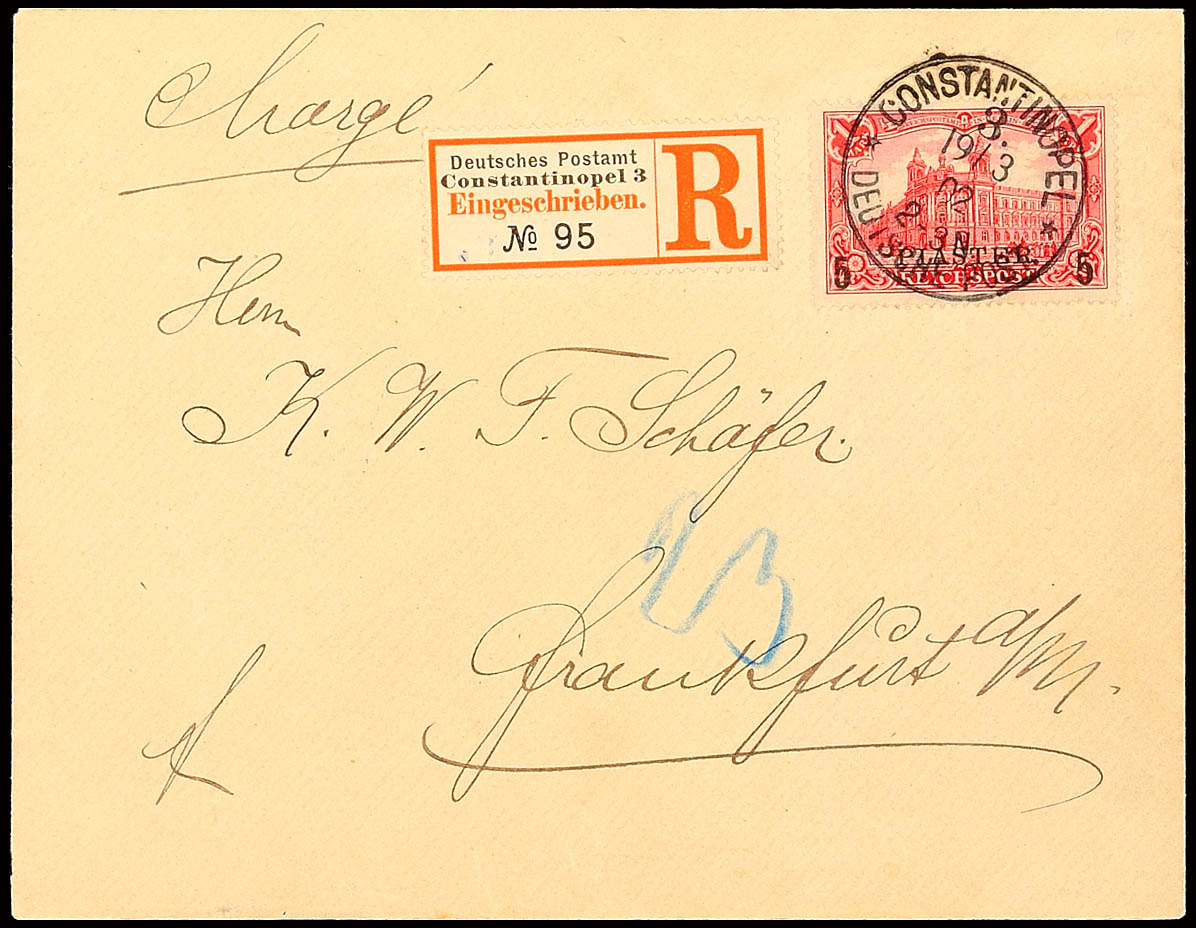 Chargé
Deutsches Postamt
Constantinopel 3
Eingeschrieben.
№ 95
R
CONSTANTINOPEL
3.
19/3
DEUTSCHE POST
5 PIASTER 5
REICHSPOST
Herrn
K. W. F. Schäfer.
Frankfurt a/M.